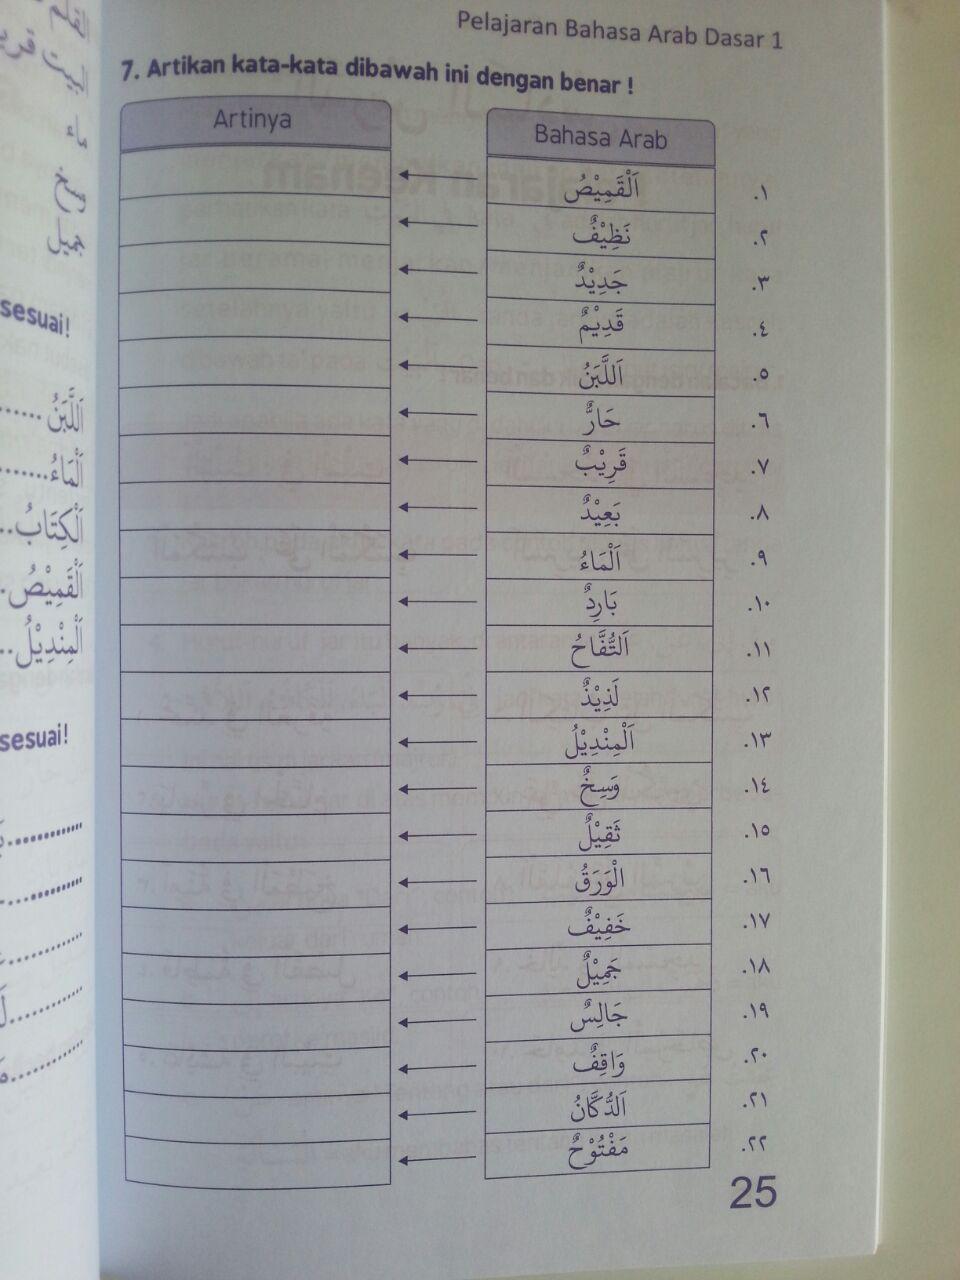 Pelajaran Bahasa Arab Dasar 1
7. Artikan kata-kata dibawah ini dengan benar !
Artinya
Bahasa Arab
١. اَلْقَمِيْصُ
٢. نَظِيْفٌ
٣. جَدِيْدٌ
٤. قَدِيْمٌ
٥. اَللَّبَنُ
٦. حَارٌّ
٧. قَرِيْبٌ
٨. بَعِيْدٌ
٩. اَلْمَاءُ
١٠. بَارِدٌ
١١. اَلتُّفَّاحُ
١٢. لَذِيْذٌ
١٣. اَلْمِنْدِيْلُ
١٤. وَسِخٌ
١٥. ثَقِيْلٌ
١٦. الْوَرَقُ
١٧. خَفِيْفٌ
١٨. جَمِيْلٌ
١٩. جَالِسٌ
٢٠. وَاقِفٌ
٢١. اَلدُّكَّانُ
٢٢. مَفْتُوْحٌ
25
ماء
وسخ
جميل
sesuai!
اَللَّبَنُ ......
اَلْمَاءُ.......
اَلْكِتَابُ..
اَلْقَمِيْصُ.
اَلْمِنْدِيْلُ..
sesuai!